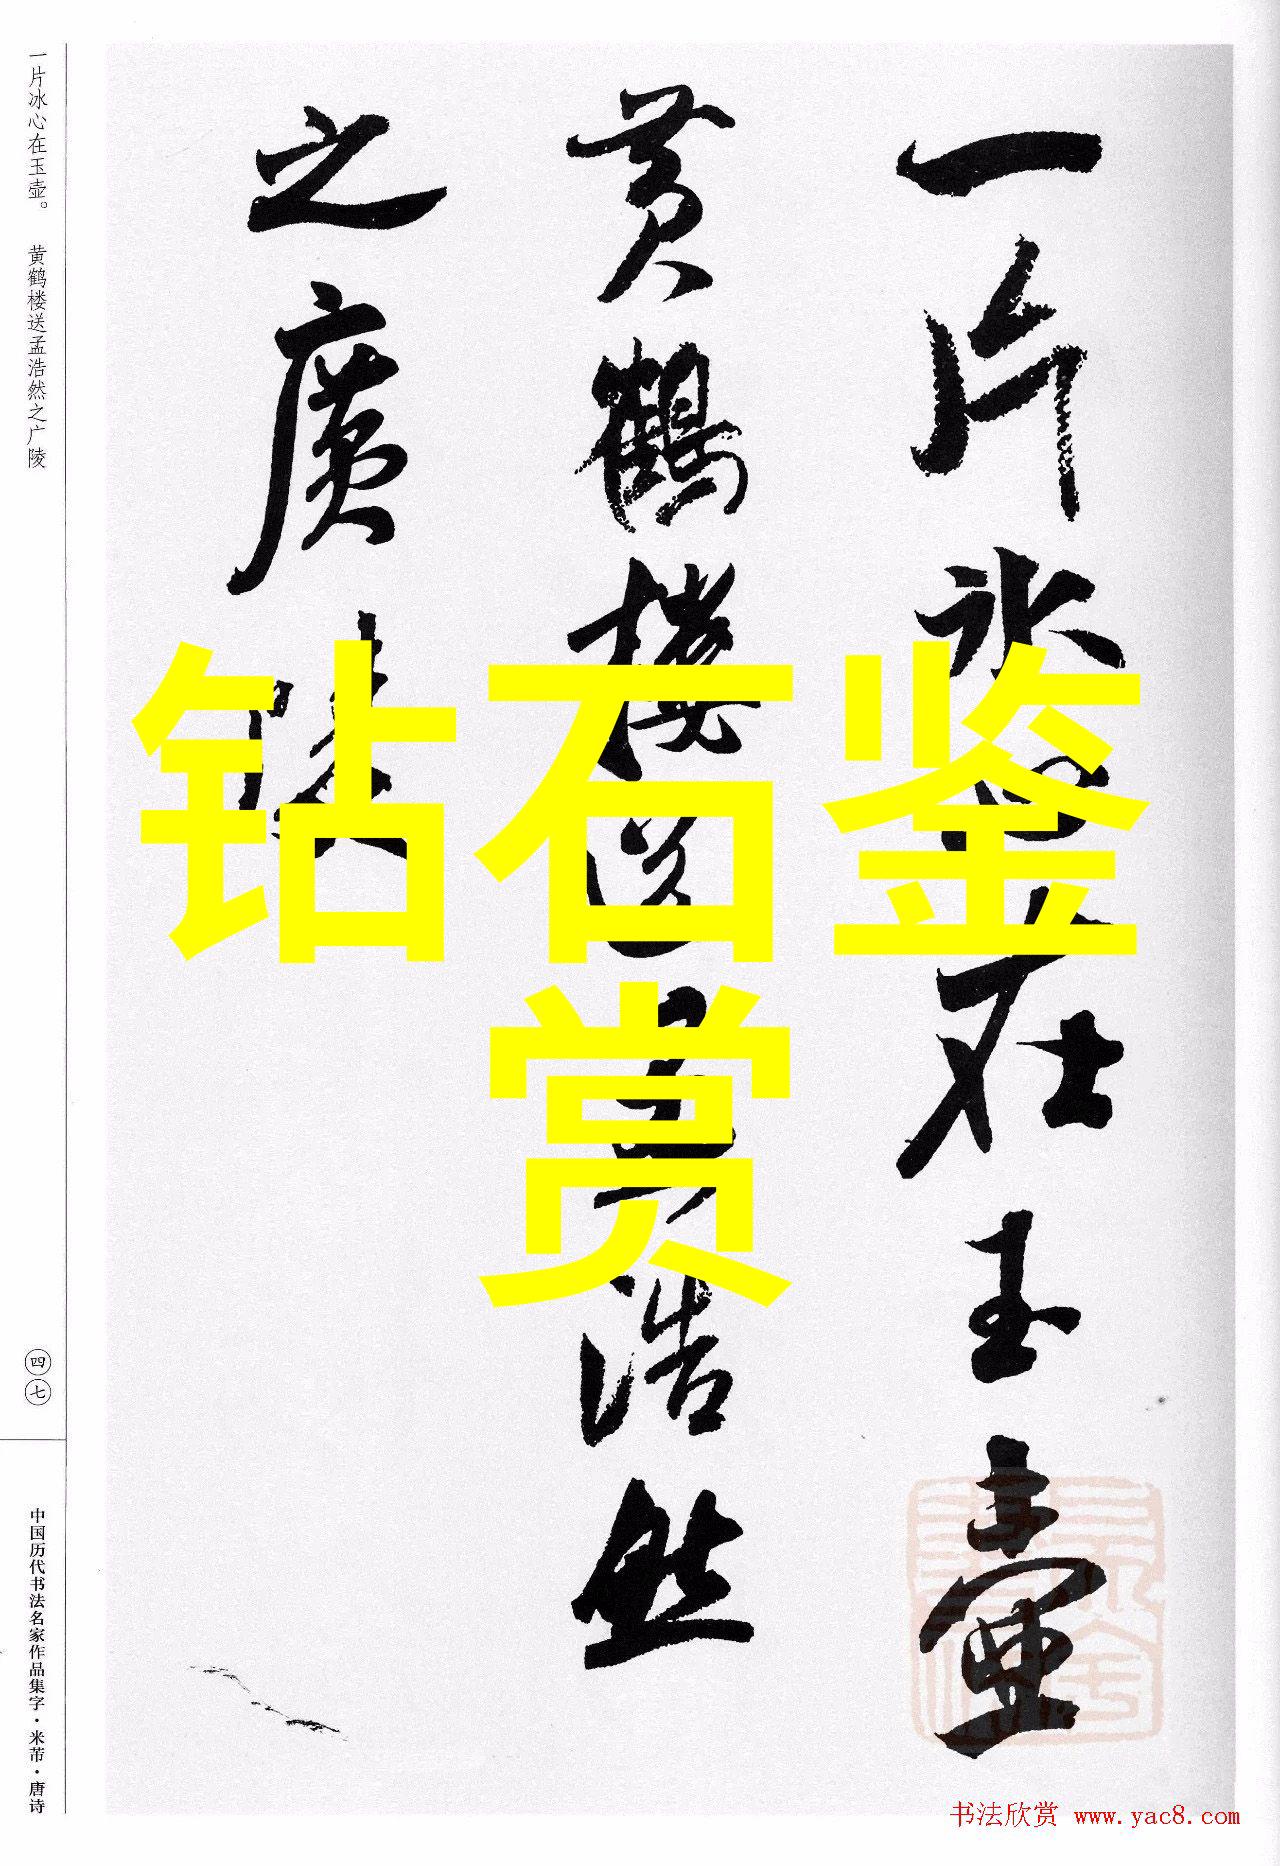 一片冰心在玉壶
黄鹤楼送孟浩然
之廣陵
钻石鉴
赏
一片冰心在玉壶。 黄鹤楼送孟浩然之广陵
四七
中国历代书法名家作品集字·米芾·唐诗
书法欣赏 www.yac8.com